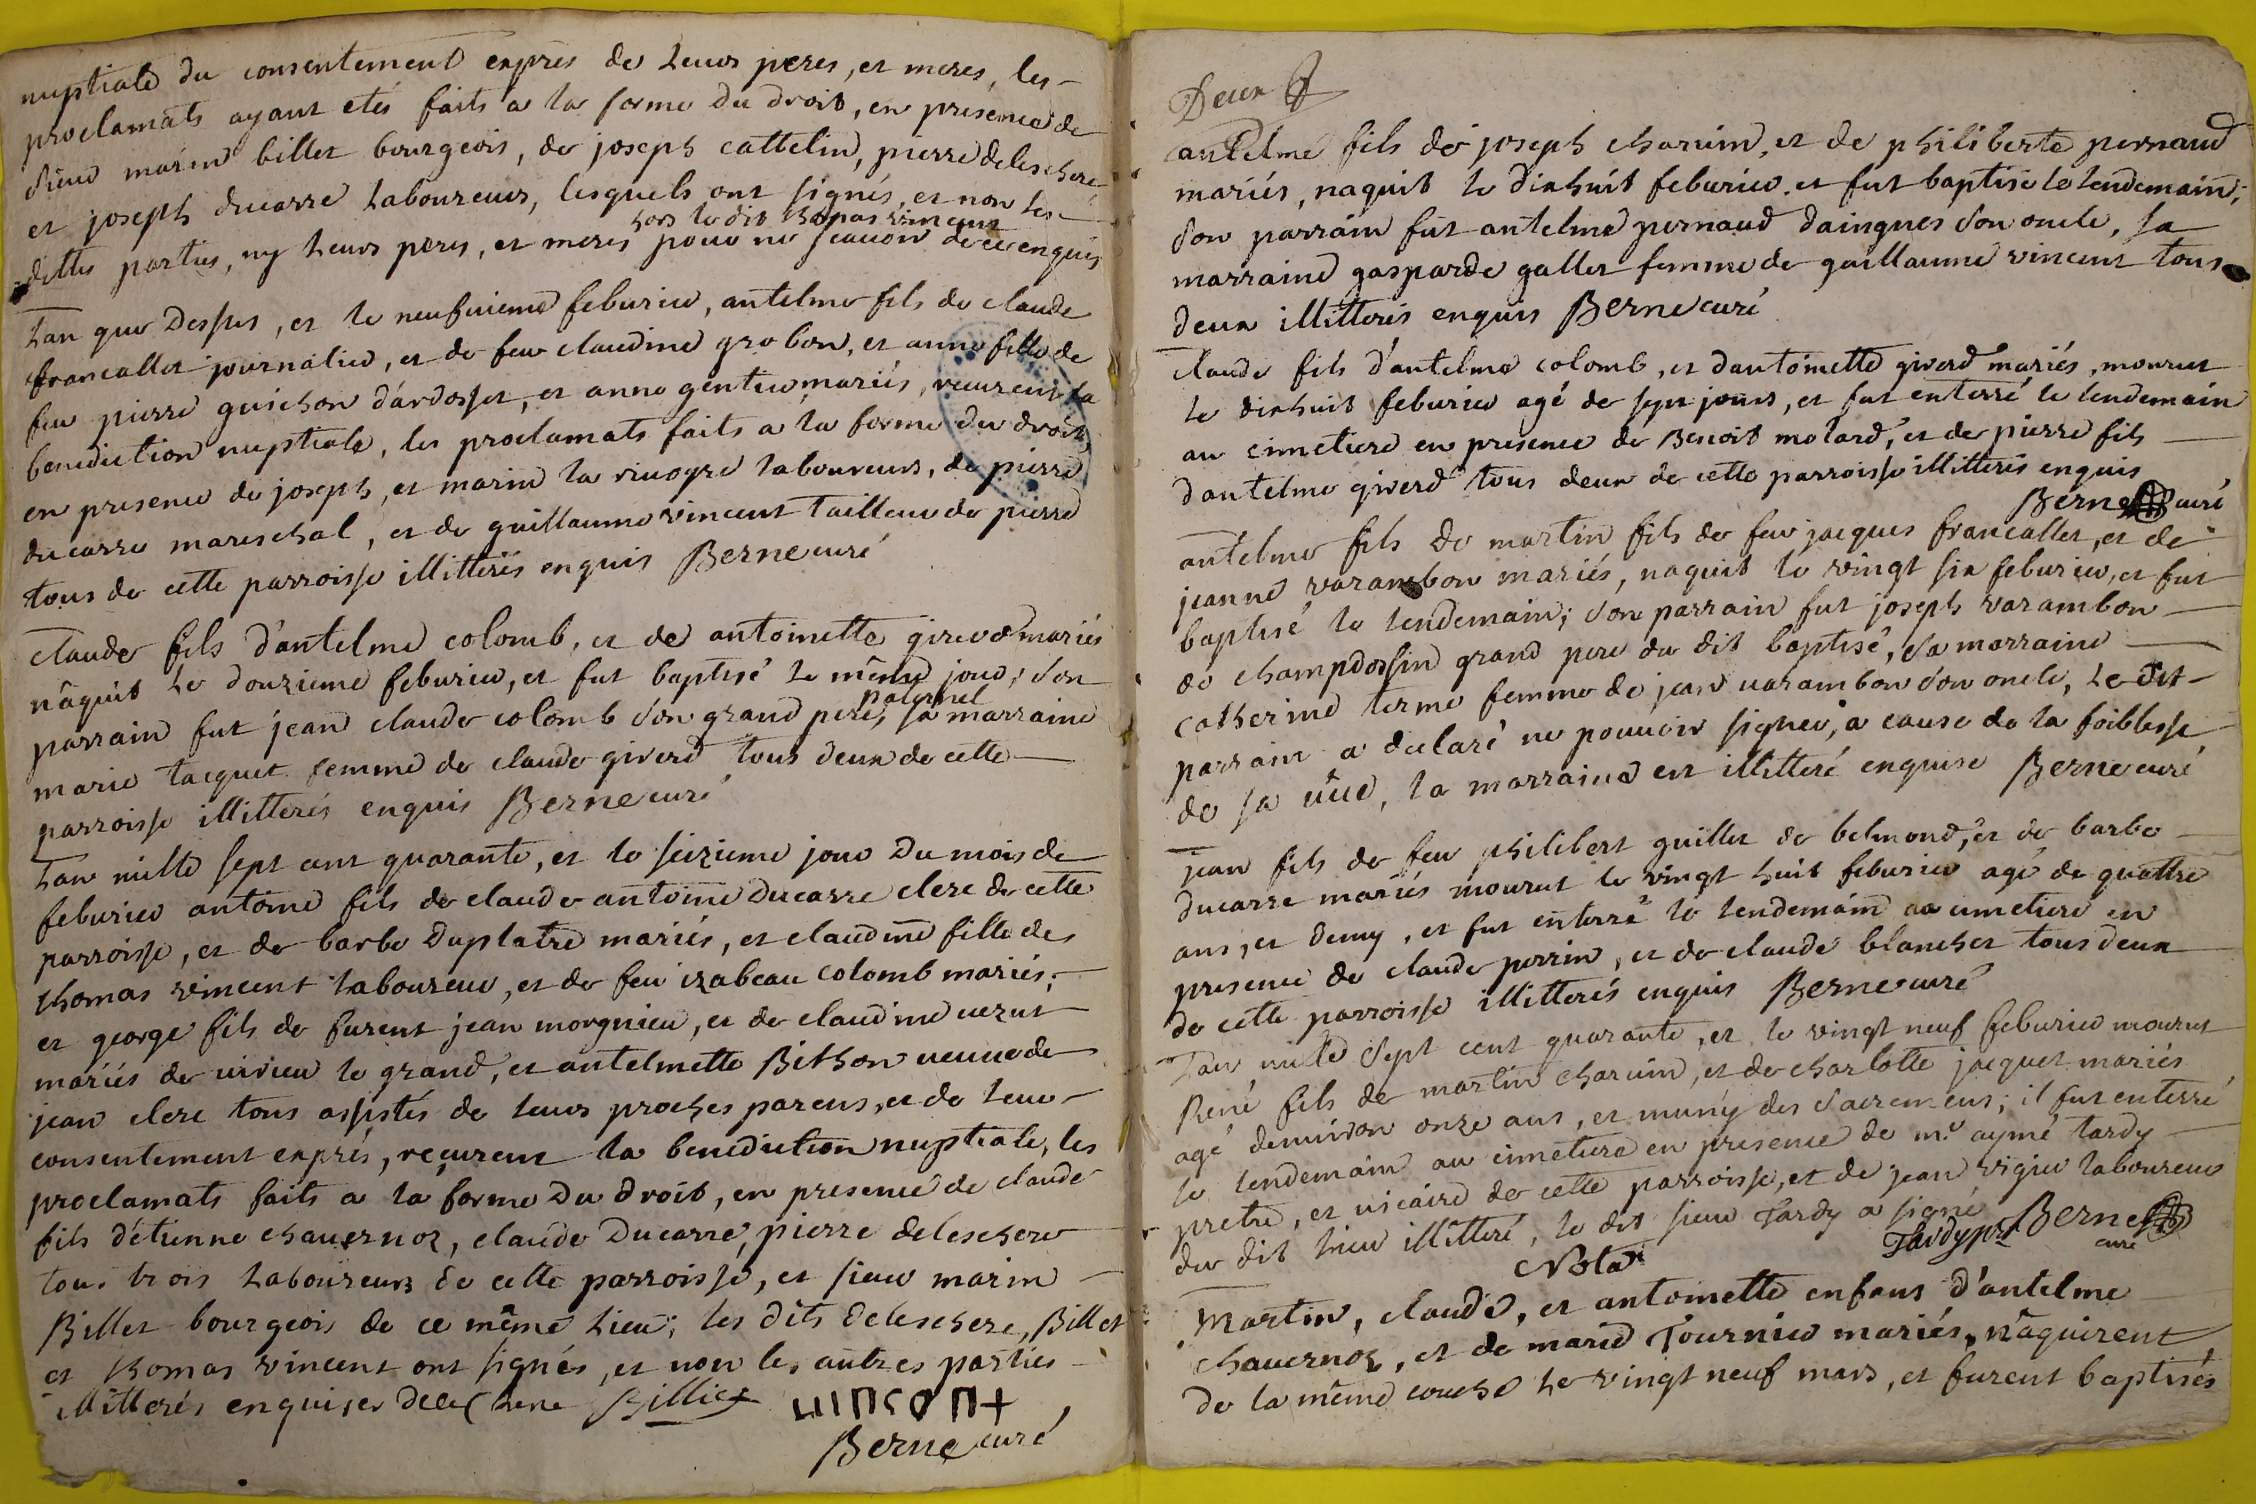 nuptiale du consentement exprès de leurs peres, et meres, les
proclamats ayant etés faits a la forme du droit, en presence de
sieur marin billet bourgeois, de joseph cattelin, pierre deleschere
et joseph ducarre laboureurs, lesquels ont signés, et non les
hors le dit thomas vincent
dittes parties, ny leurs peres, et meres pour ne scavoir de ce enquis
L'an que dessus, et le neufvieme feburier, antelme fils de claude
francallet journalier, et de feue claudine grobon, et anne fille de
feu pierre guichon d'ardosset, et anne gentier mariés, reçurent la
benediction nuptiale, les proclamats faits a la forme du droit,
en presence de joseph, et marin la rivoyre laboureurs, de pierre
ducarre mareschal, et de guillaume vincent tailleur de pierre
tous de cette parroisse illitterés enquis Berne curé
claude fils d'antelme colomb, et de antoinette giverd mariés
nâquit le douzieme feburier, et fut baptisé le même jour; son
paternel
parrain fut jean claude colomb son grand pere, sa marraine
marie tacquet femme de claude giverd tous deux de cette
parroisse illitterés enquis Berne curé
L'an mille sept cent quarante, et le seizieme jour du mois de
feburier antoine fils de claude antoine ducarre clerc de cette
parroisse, et de barbe duplatre mariés, et claudine fille de
thomas vincent laboureur, et de feu izabeau colomb mariés;
et george fils de furent jean morgnieu, et de claudine
mariés de virieu le grand, et antelmette Bithon veuve de
jean clerc tous assistés de leurs proches parens, et de leur
consentement exprés, reçurent la benediction nuptiale, les
proclamats faits a la forme du droit, en presence de claude
fils d'étienne chavernoz, claude ducarre, pierre deleschere
tous trois laboureurs de cette parroisse, et sieur marin
Billet bourgeois de ce même lieu; les dits deleschere, Billet
et thomas vincent ont signés, et non les autres parties
illitterés enquises deleschere Billiet vincent
Berne curé
Deux
antelme fils de joseph charvin, et de philiberte pernaud
mariés, naquit le dixhuit feburier, et fut baptisé le lendemain;
son parrain fut antelme pernaud daingnes son oncle, sa
marraine gasparde gallet femme de guillaume vincent tous
deux illitterés enquis Berne curé
claude fils d'antelme colomb, et dantoinette giverd mariés, mourut
le dixhuit feburier agé de sept jours, et fut enterré le lendemain
au cimetiere en presence de Benoit molard, et de pierre fils
dantelme giverd tous deux de cette parroisse illitterés enquis
Berne curé
antelme fils de martin fils de feu jacques francallet, et de
jeanne varambon mariés, naquit le vingt six feburier, et fut
baptisé le lendemain; son parrain fut joseph varambon
de champdossin grand pere du dit baptisé, sa marraine
catherine terme femme de jean varambon son oncle, le dit
parrain a declaré ne pouvoir signer, a cause de la foiblesse
de sa vûe, la marraine est illitteré enquise Berne curé
jean fils de feu philibert guillet de belmond, et de barbe
ducarre mariés mourut le vingt huit feburier agé de quattre
ans, et demy, et fut enterré le lendemain au cimetiere en
presence de claude perrin, et de claude blanchet tous deux
de cette parroisse illitterés enquis Berne curé
L'an mille sept cent quarante, et le vingt neuf feburier mourut
René fils de martin charvin, et de charlotte jacquet mariés
agé denviron onze ans, et muny des sacremens; il fut enterré
le lendemain au cimetiere en presence de mr. aymé tardy
pretre, et vicaire de cette parroisse, et de jean vigier laboureur
du dit lieu illitteré, le dit sieur Tardy a signé
Tardy ptre Berne curé
Nota
Martin, claude, et antoinette enfans d'antelme
chavernoz, et de marie Tournier mariés, nâquirent
de la même couche le vingt neuf mars, et furent baptisés